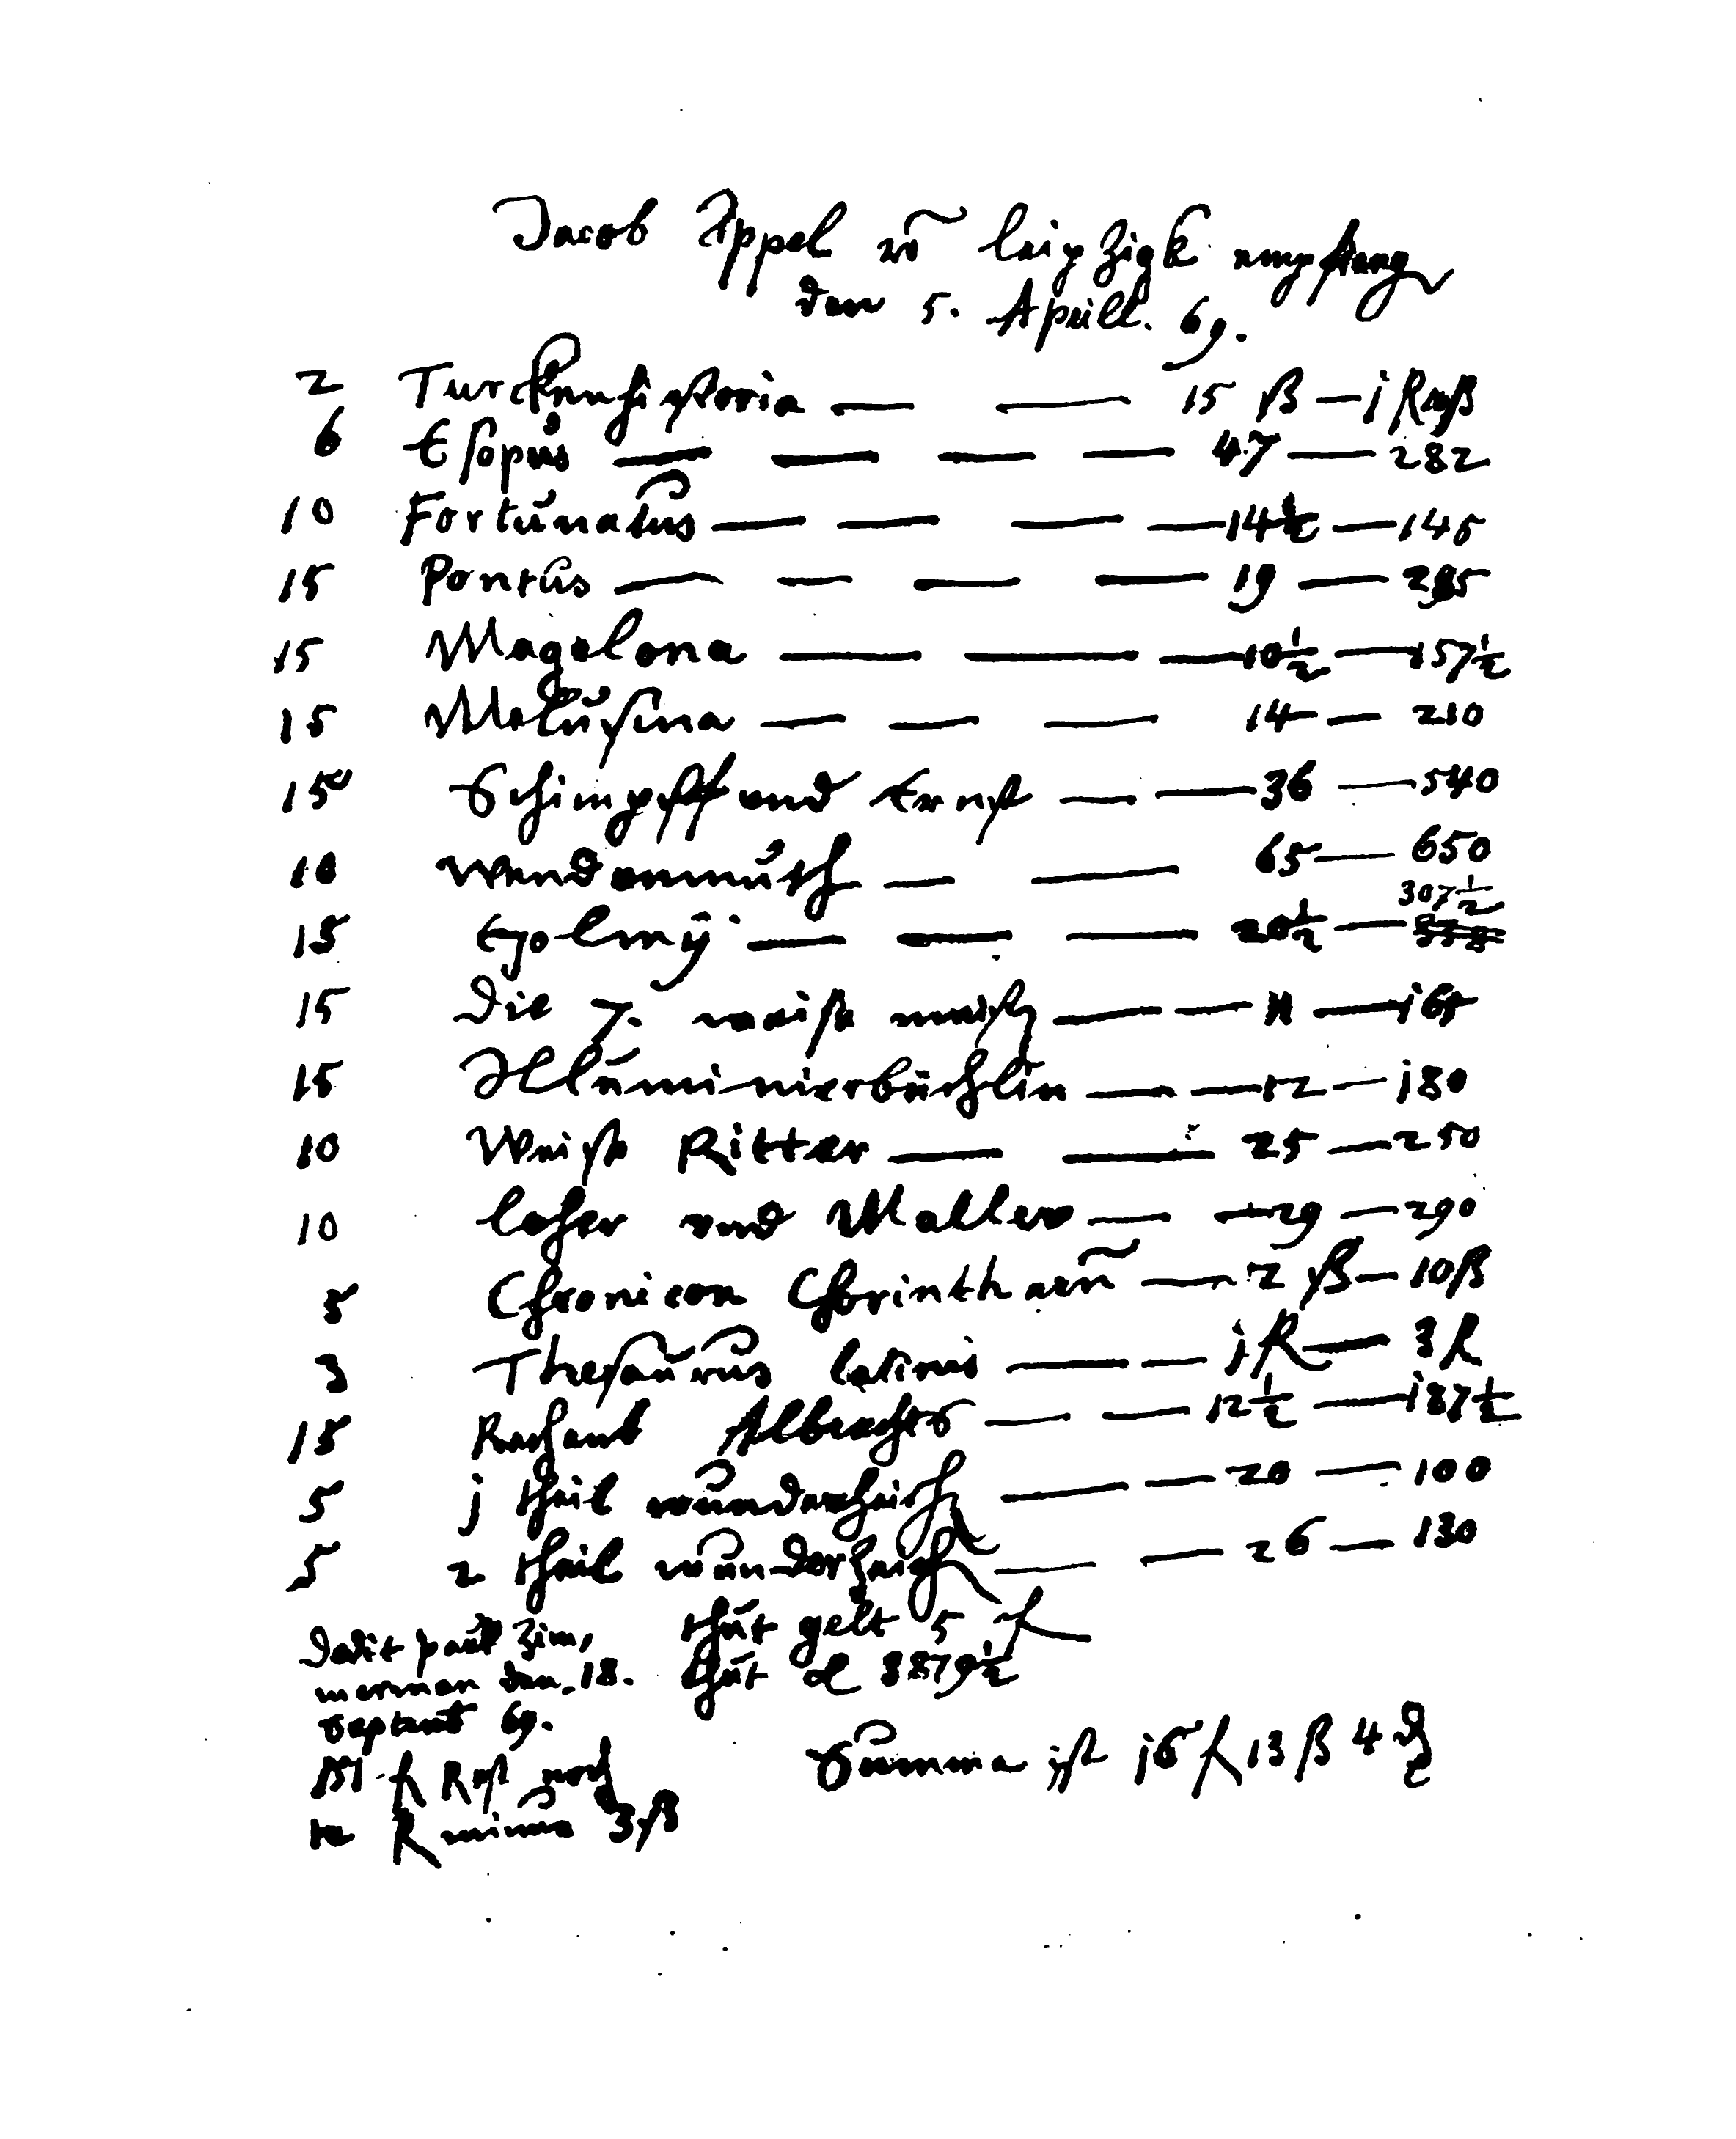 Jacob Appel võ leipzigk empfang
den 5. Aprill. 69.
2 Turckenhistoria — — 15 ß — j fl x ß
6 Esopus — — — — 47 — 282
10 Fortunatus — — — — 14½ — 145
15 Pontus — — — — 19 — 285
15 Magelona — — — 10½ — 157½
15 Melusina — — — 14 — 210
15 Schimpff und Ernst — — 36 — 540
10 Wendonmuth — — 65 — 650
15 — — — 20½ — 307½
15 Die 7. weise meister — — 11 — 165
15 Illuminierbüchlin — — 12 — j80
10 Weiss Ritter — — 25 — 250
10 loher und Maller — — 29 — 290
5 Chronicon Charinthaeñ — 2 ß — 10 ß
3 Thesaurus latinus — — j fl — 3 fl
15 Albrecht — — 12½ — j87½
5 j theil wunderzeich — — 20 — 100
5 2 theil wunderzeich — — 26 — 130
thut gelt 5 fl
thut 3879½
Dedit paul Zim,
merman den. 18.
septemb 69.
fl Rest noch
fl minus 3 ß
Summa ist j6 fl 13 ß 4 ₰